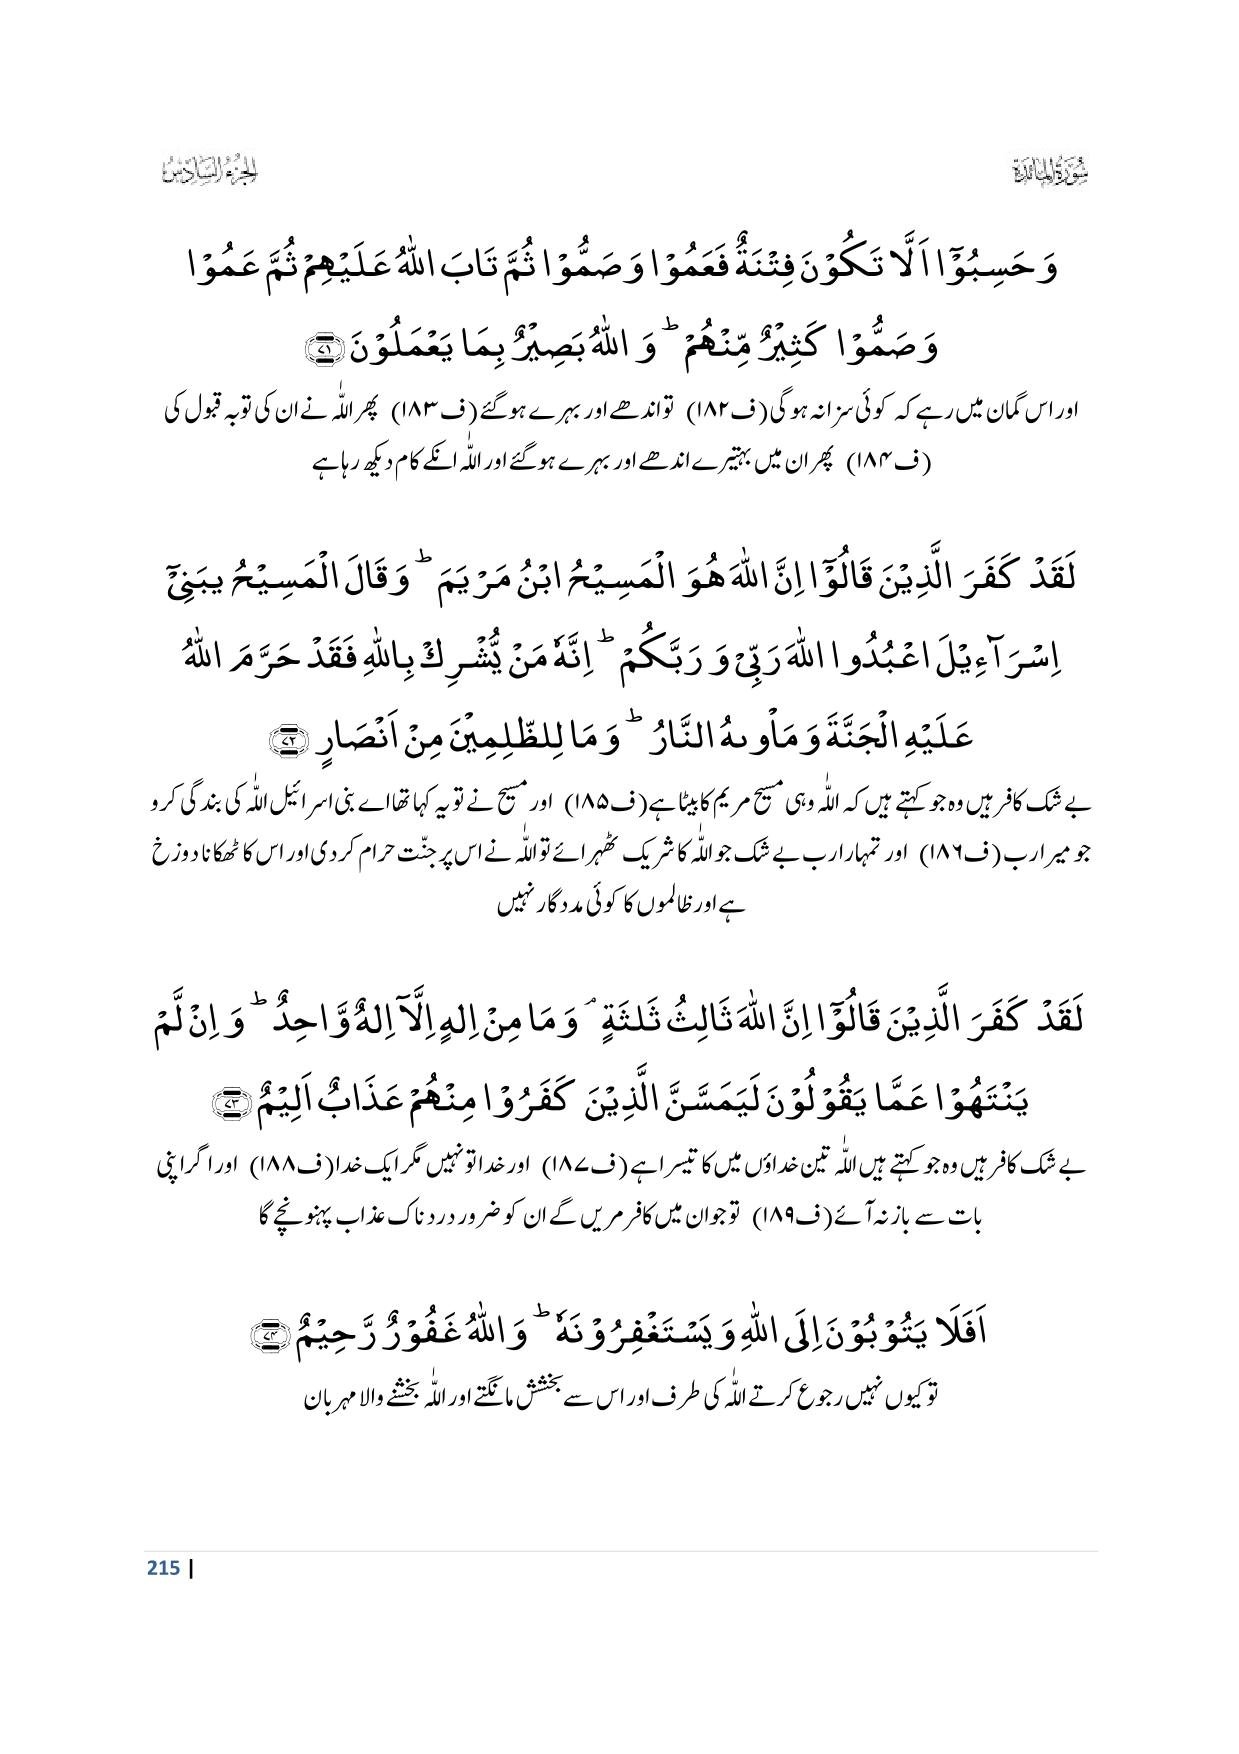 سُوْرَۃُ الْمَائِدَۃ
الجزء السادس
وَ حَسِبُوْۤا اَلَّا تَكُوْنَ فِتْنَةٌ فَعَمُوْا وَ صَمُّوْا ثُمَّ تَابَ اللّٰهُ عَلَیْهِمْ ثُمَّ عَمُوْا
وَ صَمُّوْا كَثِیْرٌ مِّنْهُمْؕ وَ اللّٰهُ بَصِیْرٌۢ بِمَا یَعْمَلُوْنَ ﴿۷۱﴾
اور اس گمان میں رہے کہ کوئی سزا نہ ہوگی (ف۱۸۲) تو اندھے اور بہرے ہوگئے (ف۱۸۳) پھر اللہ نے ان کی توبہ قبول کی
(ف۱۸۴) پھر ان میں بہتیرے اندھے اور بہرے ہوگئے اور اللہ انکے کام دیکھ رہا ہے
لَقَدْ كَفَرَ الَّذِیْنَ قَالُوْۤا اِنَّ اللّٰهَ هُوَ الْمَسِیْحُ ابْنُ مَرْیَمَؕ وَ قَالَ الْمَسِیْحُ یٰبَنِیْۤ
اِسْرَآءِیْلَ اعْبُدُوا اللّٰهَ رَبِّیْ وَ رَبَّكُمْؕ اِنَّهٗ مَنْ یُّشْرِكْ بِاللّٰهِ فَقَدْ حَرَّمَ اللّٰهُ
عَلَیْهِ الْجَنَّةَ وَ مَاْوٰىهُ النَّارُؕ وَ مَا لِلظّٰلِمِیْنَ مِنْ اَنْصَارٍ ﴿۷۲﴾
بے شک کافر ہیں وہ جو کہتے ہیں کہ اللہ وہی مسیح مریم کا بیٹا ہے (ف۱۸۵) اور مسیح نے تو یہ کہا تھا اے بنی اسرائیل اللہ کی بندگی کرو
جو میرا رب (ف۱۸۶) اور تمہارا رب بے شک جو اللہ کا شریک ٹھہرائے تو اللہ نے اس پر جنّت حرام کردی اور اس کا ٹھکانا دوزخ
ہے اور ظالموں کا کوئی مددگار نہیں
لَقَدْ كَفَرَ الَّذِیْنَ قَالُوْۤا اِنَّ اللّٰهَ ثَالِثُ ثَلٰثَةٍۘ وَ مَا مِنْ اِلٰهٍ اِلَّاۤ اِلٰهٌ وَّاحِدٌؕ وَ اِنْ لَّمْ
یَنْتَهُوْا عَمَّا یَقُوْلُوْنَ لَیَمَسَّنَّ الَّذِیْنَ كَفَرُوْا مِنْهُمْ عَذَابٌ اَلِیْمٌ ﴿۷۳﴾
بے شک کافر ہیں وہ جو کہتے ہیں اللہ تین خداؤں میں کا تیسرا ہے (ف۱۸۷) اور خدا تو نہیں مگر ایک خدا (ف۱۸۸) اور اگر اپنی
بات سے باز نہ آئے (ف۱۸۹) تو جو ان میں کافر مریں گے ان کو ضرور دردناک عذاب پہنونچے گا
اَفَلَا یَتُوْبُوْنَ اِلَى اللّٰهِ وَ یَسْتَغْفِرُوْنَهٗؕ وَ اللّٰهُ غَفُوْرٌ رَّحِیْمٌ ﴿۷۴﴾
تو کیوں نہیں رجوع کرتے اللہ کی طرف اور اس سے بخشش مانگتے اور اللہ بخشنے والا مہربان
215 |